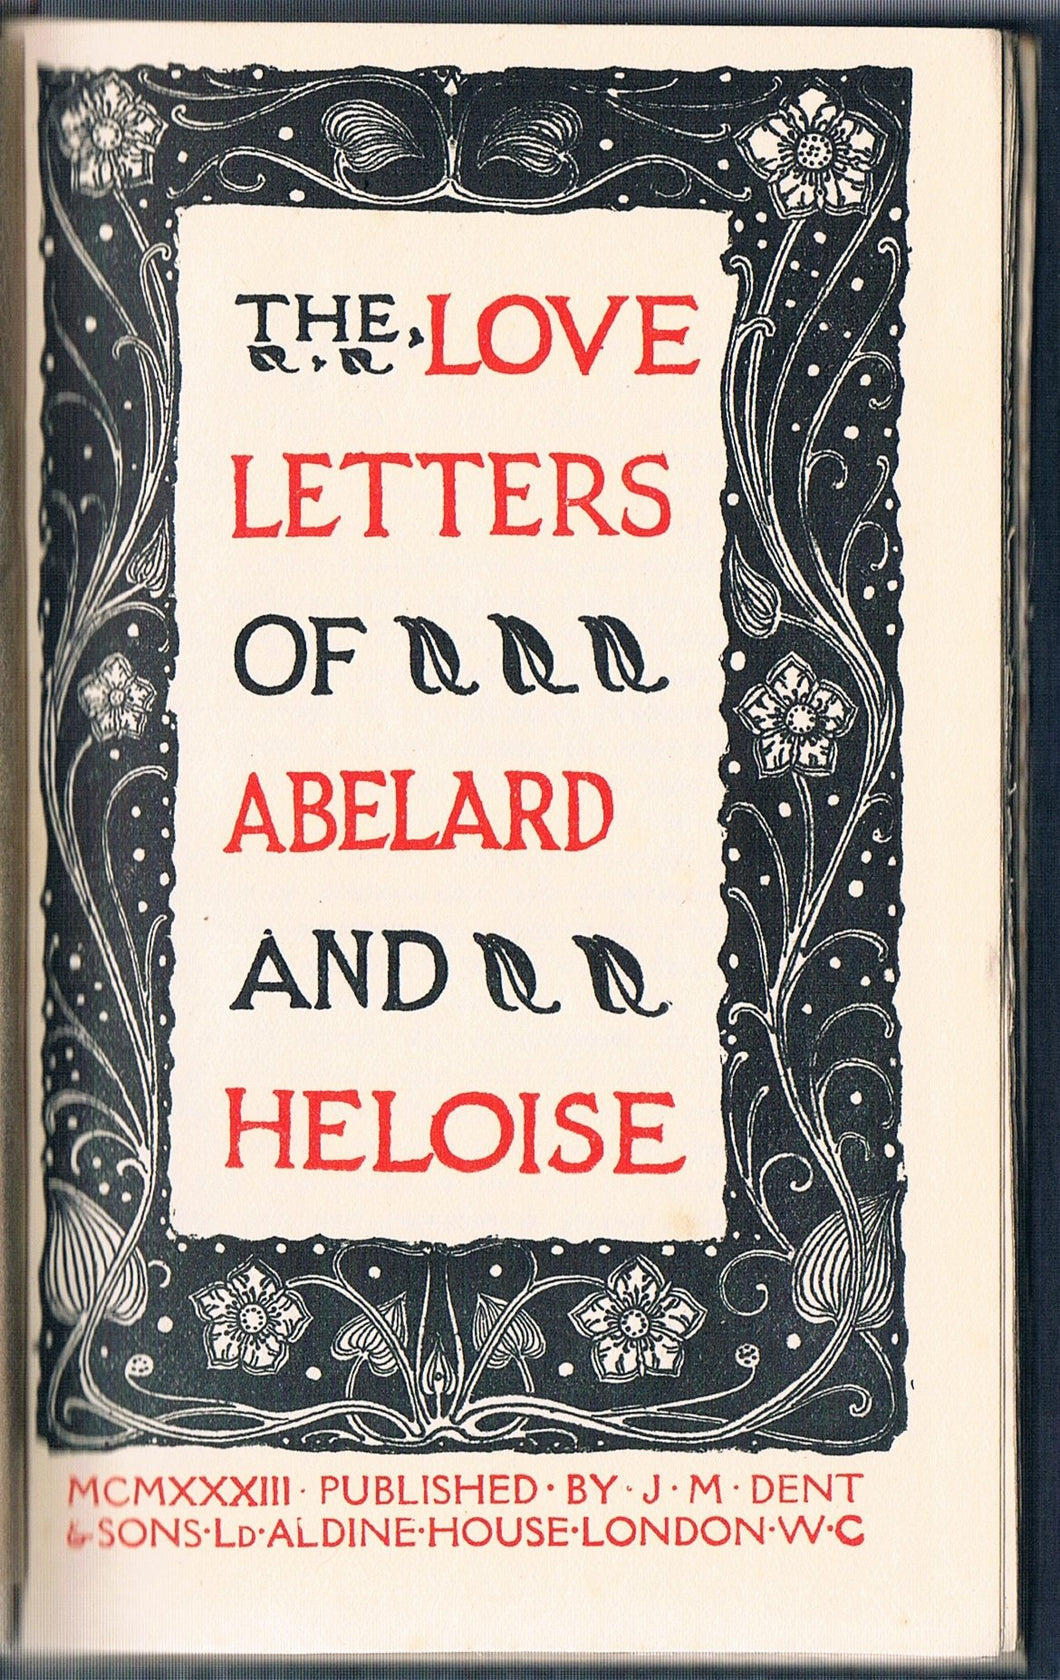 THE LOVE
LETTERS
OF
ABELARD
AND
HELOISE
MCMXXXIII · PUBLISHED · BY · J · M · DENT
& SONS · LD · ALDINE · HOUSE · LONDON · W · C